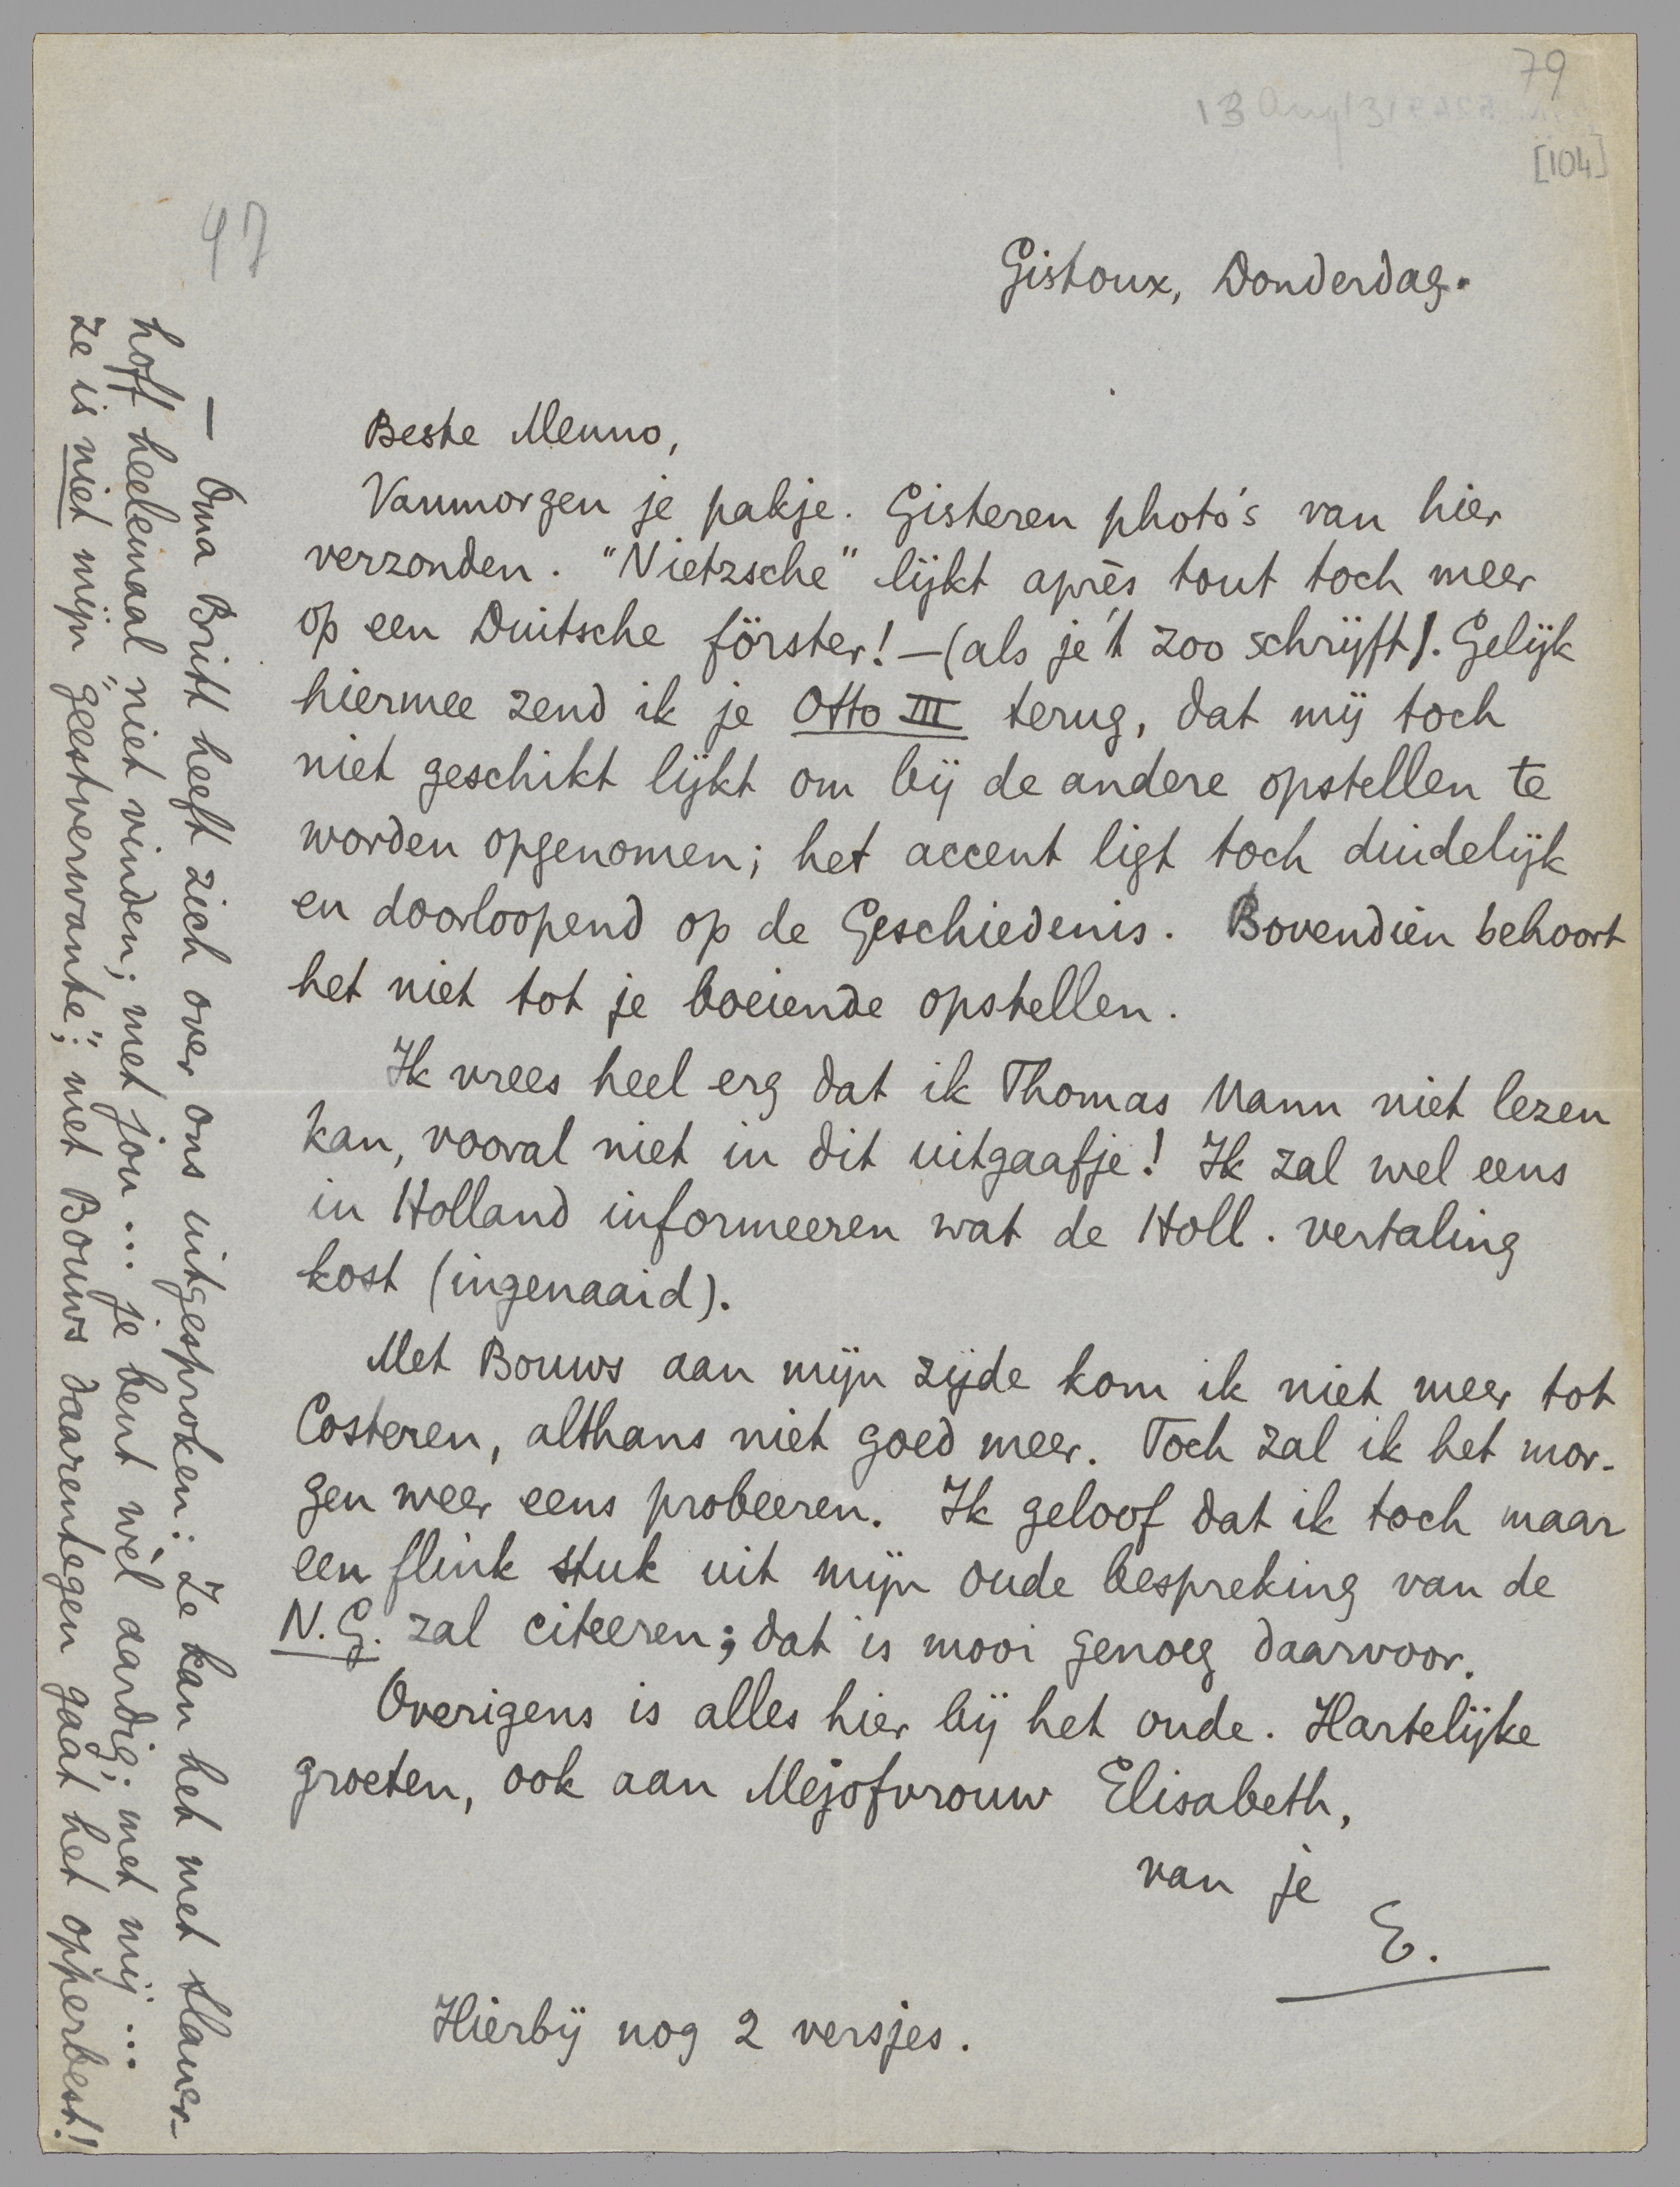 79
13 Aug 31
[104]
47
Gistoux, Donderdag.
Beste Menno,
Vanmorgen je pakje. Gisteren photo's van hier
verzonden. "Nietzsche" lijkt après tout toch meer
op een Duitsche förster! — (als je 't zoo schrijft). Gelijk
hiermee zend ik je Otto III terug, dat mij toch
niet geschikt lijkt om bij de andere opstellen te
worden opgenomen; het accent ligt toch duidelijk
en doorloopend op de Geschiedenis. Bovendien behoort
het niet tot je boeiende opstellen.
Ik vrees heel erg dat ik Thomas Mann niet lezen
kan, vooral niet in dit uitgaafje! Ik zal wel eens
in Holland informeeren wat de Holl. vertaling
kost (ingenaaid).
Met Bouws aan mijn zijde kom ik niet meer tot
Costeren, althans niet goed meer. Toch zal ik het mor-
gen weer eens probeeren. Ik geloof dat ik toch maar
een flink stuk uit mijn oude bespreking van de
N.G. zal citeeren; dat is mooi genoeg daarvoor.
Overigens is alles hier bij het oude. Hartelijke
groeten, ook aan Mejofvrouw Elisabeth,
van je
E.
Hierbij nog 2 versjes.
— Oma Britt heeft zich over ons uitgesproken: Ze kan het met Slauer-
hoff heelemaal niet vinden; met jou ... je bent wèl aardig; met mij ...
ze is niet mijn "geestverwante"; met Bouws daarentegen gaat het opperbest!